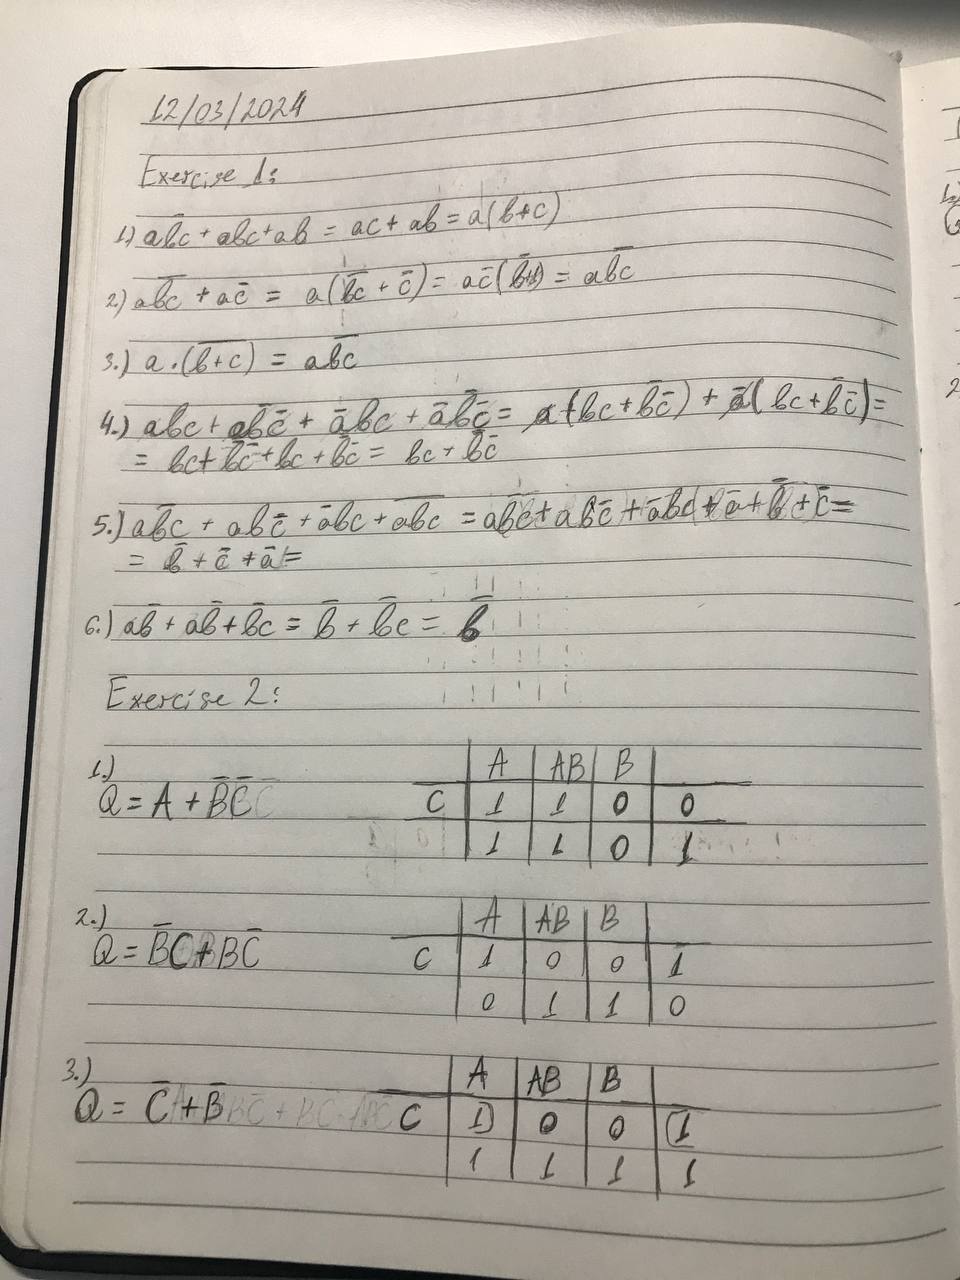 12/03/2024
Exercise 1:
1.) ab̄c + abc + ab = ac + ab = a(b+c)
2.) ab̄c̄ + ac̄ = a(b̄c̄ + c̄) = ac̄(b̄+1) = ab̄c̄
3.) a·(b̅+̅c̅) = ab̄c̄
4.) abc + ab̄c̄ + ābc + āb̄c̄ = a(bc+b̄c̄) + ā(bc+b̄c̄) =
= bc + b̄c̄ + bc + b̄c̄ = bc + b̄c̄
5.) ab̄c + abc̄ + ābc + a̅b̅c̅ = ab̄c + abc̄ + ābc + ā + b̄ + c̄ =
= b̄ + c̄ + ā =
6.) ab̄ + ab̄ + b̄c = b̄ + b̄c = b̄
Exercise 2:
1.)
Q = A + B̄C̄
A AB B
C 1 1 0 0
1 1 0 1
2.)
Q = B̄C + BC̄
A AB B
C 1 0 0 1
0 1 1 0
3.)
Q = C̄ + B̄
A AB B
C 1 0 0 1
1 1 1 1